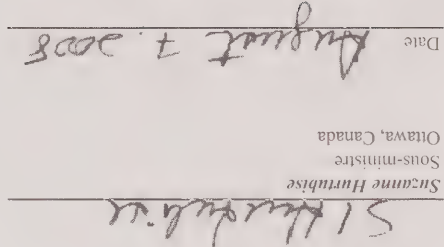 S Hurtubise
Suzanne Hurtubise
Sous-ministre
Ottawa, Canada
August 7. 2008
Date